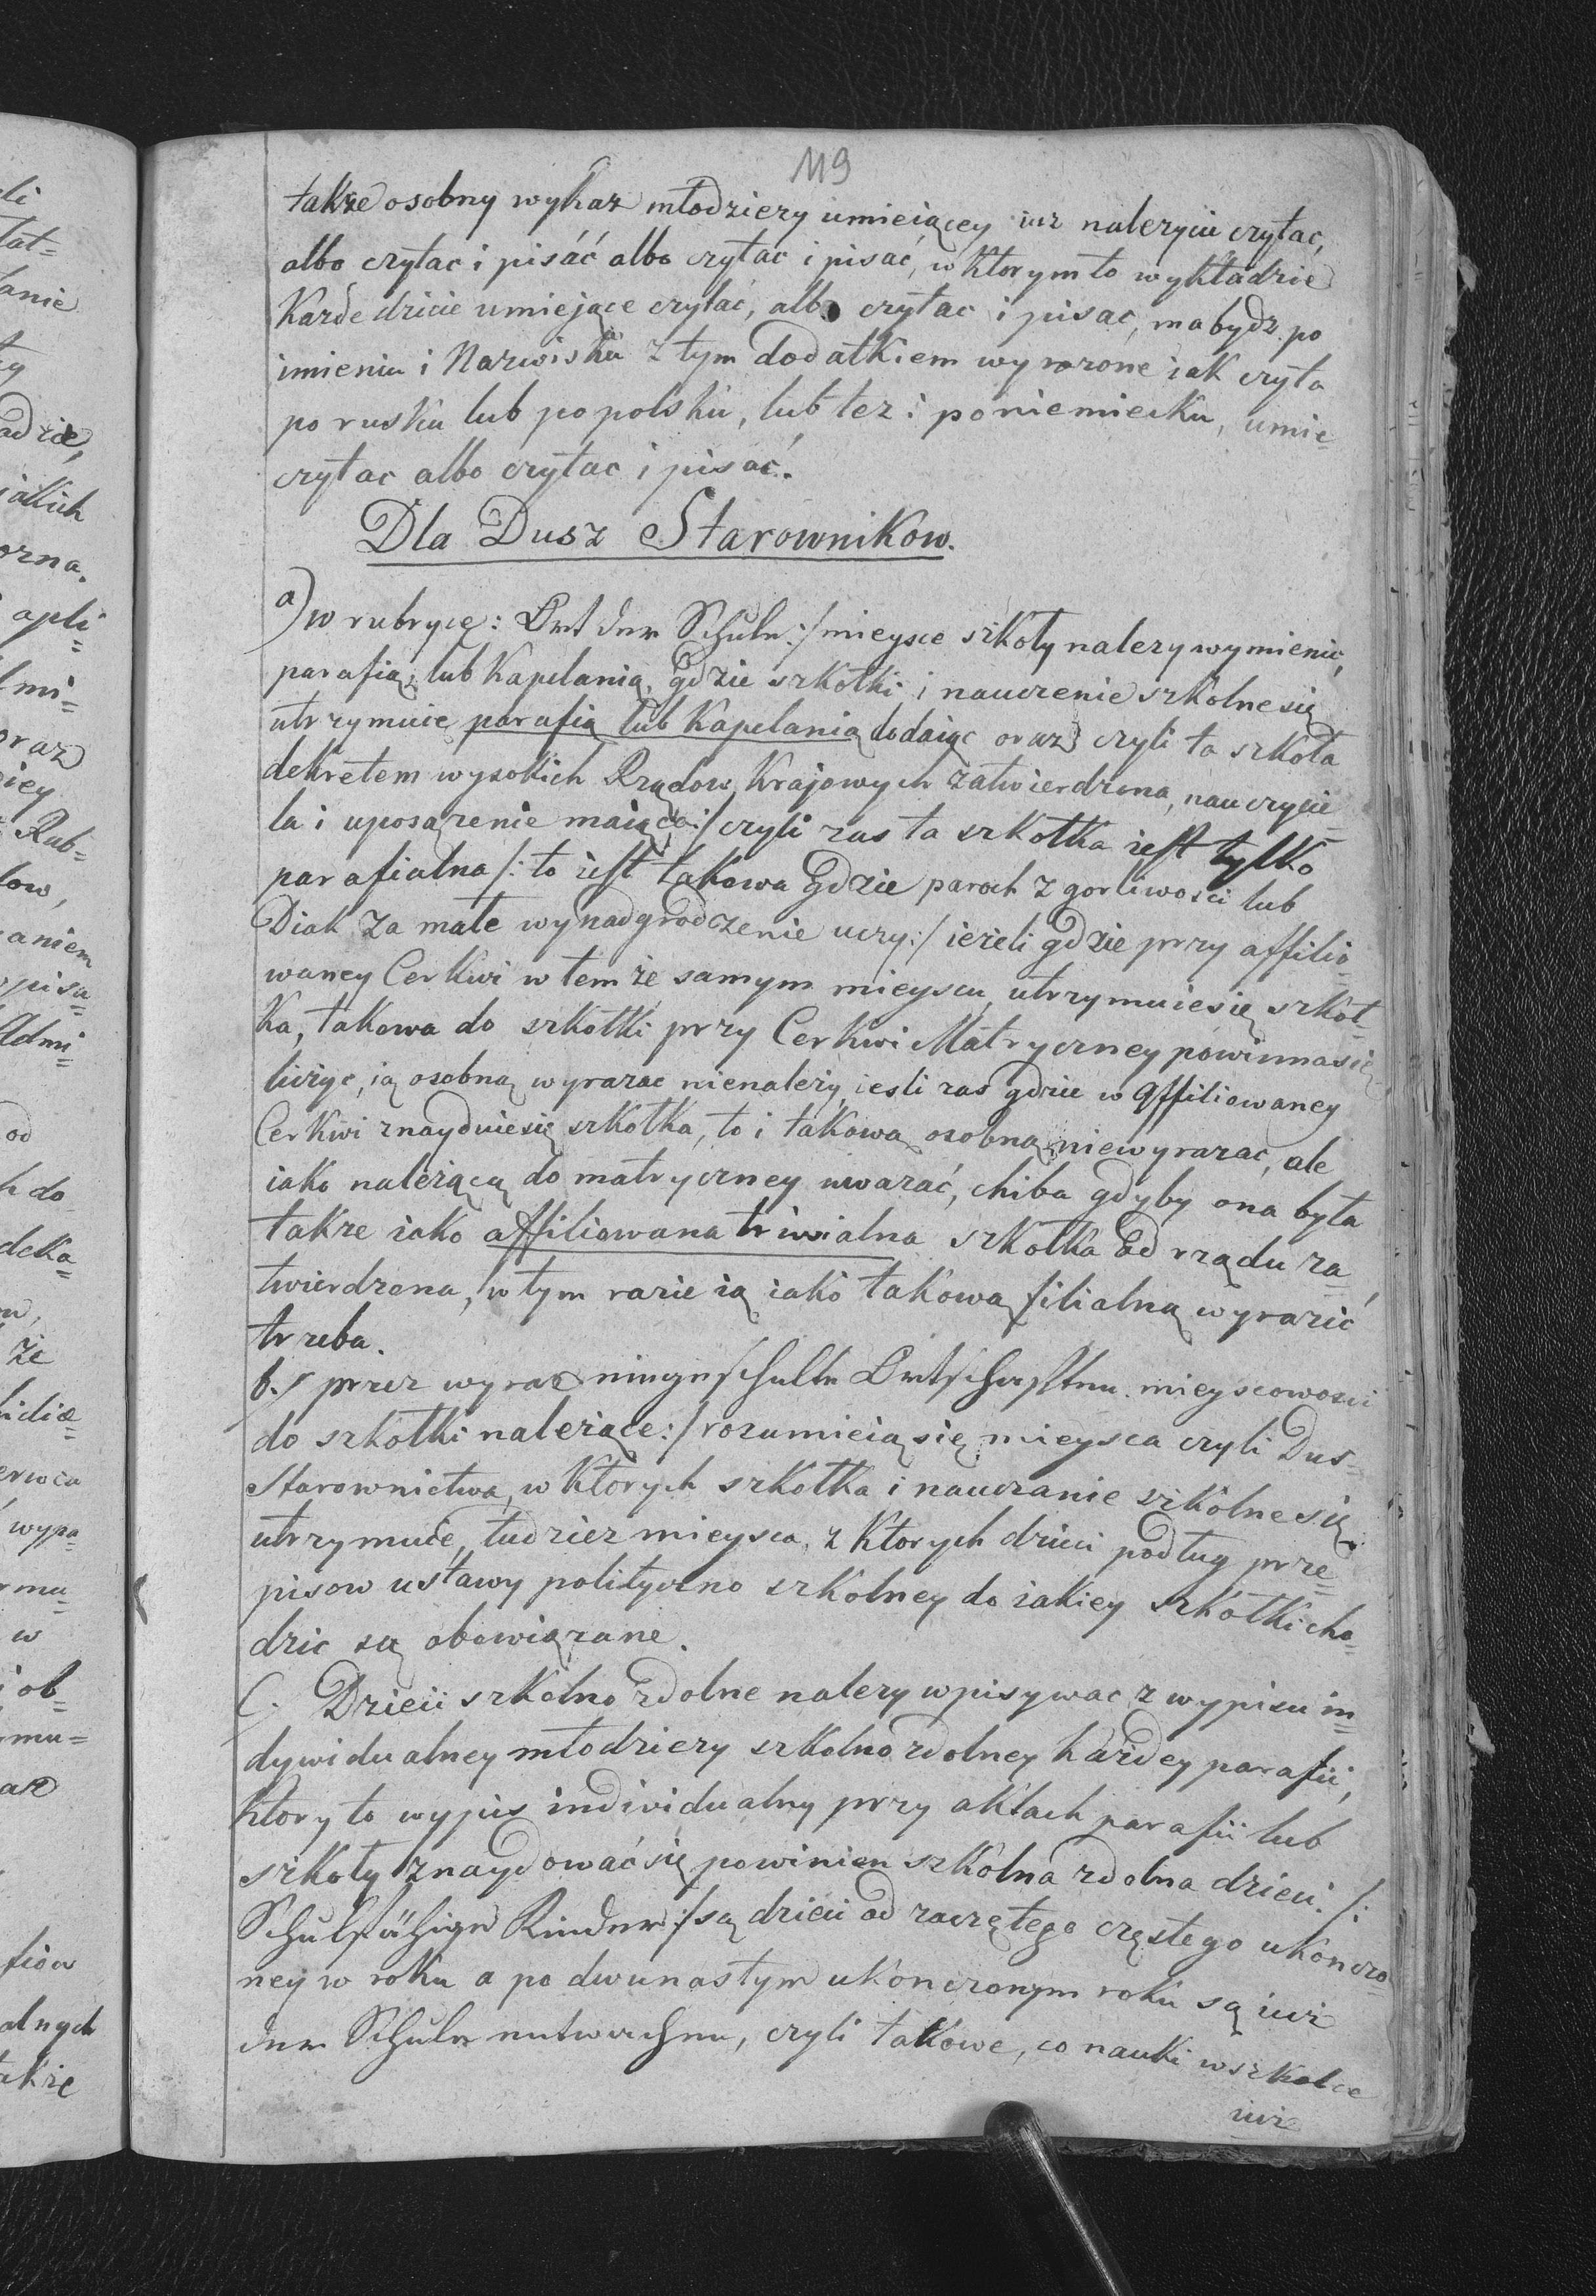 119
także osobny wykaz młodzieży umieiącey iuz nalezycie czytac,
albo czytac i pisáć albo czytac i pisać, w ktorym to wykładzie
Każde dziecie umiejące czytać, albo czytac i pisac, ma bydz po
imieniu i Nazwisku z tym dodatkiem wyrazone iak czyta
po rusku lub po polsku, lub tez i po niemiecku, umie
czytac albo czytac i pisać.
Dla Dusz Starownikow.
a) w rubryce: Ort der Schule :/ mieysce szkoły nalezy wymienic,
parafią, lub Kapelanią, gdzie szkołki i nauczenie szkolne się
utrzymuie parafią lub Kapelanią dodaiąc oraz czyli ta szkoła
dekretem wysokich Rządow Krajowych zatwierdzona, nauczycie=
la i uposazenie maiąca :/ czyli zas ta szkołka iest tylko
parafialna /: to iest takowa gdzie paroch z gorliwosci lub
Diak za małe wynadgrodzenie uczy :/ ieżeli gdzie przy affilio=
waney Cerkwi w tem że samym mieyscu utrzymuie się szkoł=
ka, takowa do szkołki przy Cerkwi Matryczney powinna się
liczyc, ią osobną wyrazac nienależy, iesli zas gdzie w affiliowaney
Cerkwi znayduie się szkołka, to i takową osobną niewyrazac, ale
iako należącą do matryczney uwazać, chiba gdyby ona była
takze iako affiliowana triwialna szkołka od rządu za
twierdzona, w tym razie ią iako takową filialną wyrazić
trzeba.
b./ przez wyraz eingeschulte Ortschaften mieyscowosci
do szkołki należące :/ rozumieią się mieysca czyli Dus=
Starownictwa, w ktorych szkołka i nauczanie szkolne się
utrzymuie, tudziez mieysca, z ktorych dzieci podług prze=
pisow ustawy polityczno szkolney do iakiey szkołki cho=
dzic są obowiązane.
C. Dzieci szkolno zdolne nalezy wpisywac z wypisu in=
dywidualney młodziezy szkolno zdolney każdey parafii,
ktory to wypis individualny przy aktach parafii lub
szkoły znaydować się powinien szkolna zdolna dzieci. /:
Schulfähige Kinder :/ są dzieci od zaczętego cząstego ukonczo=
ney w roku a po dwunastym ukonczonym roku są iuż
der Schule entwachsen, czyli takowe, co nauki w szkolce
iuż